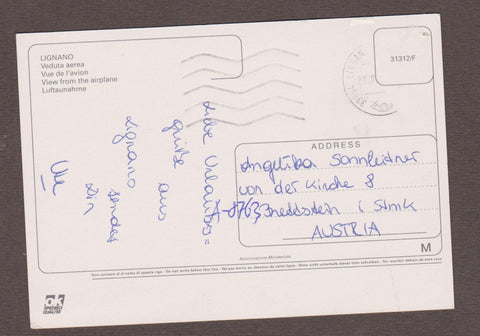 LIGNANO
Veduta aerea
Vue de l'avion
View from the airplane
Luftaunahme
31312/F
Liebe Urlaubs=
grüße aus
Lignano
sendet
Dir
Ute
ADDRESS
Angelika Sonnleitner
von der Kirche 8
A-8763
i Stmk
AUSTRIA
Autorizzazione Ministeriale
M
Non scrivere al di sotto di questa riga - Do not write below this line - Ne pas écrire au-dessous de cette ligne - Bitte nicht unterhalb dieser Linie schreiben